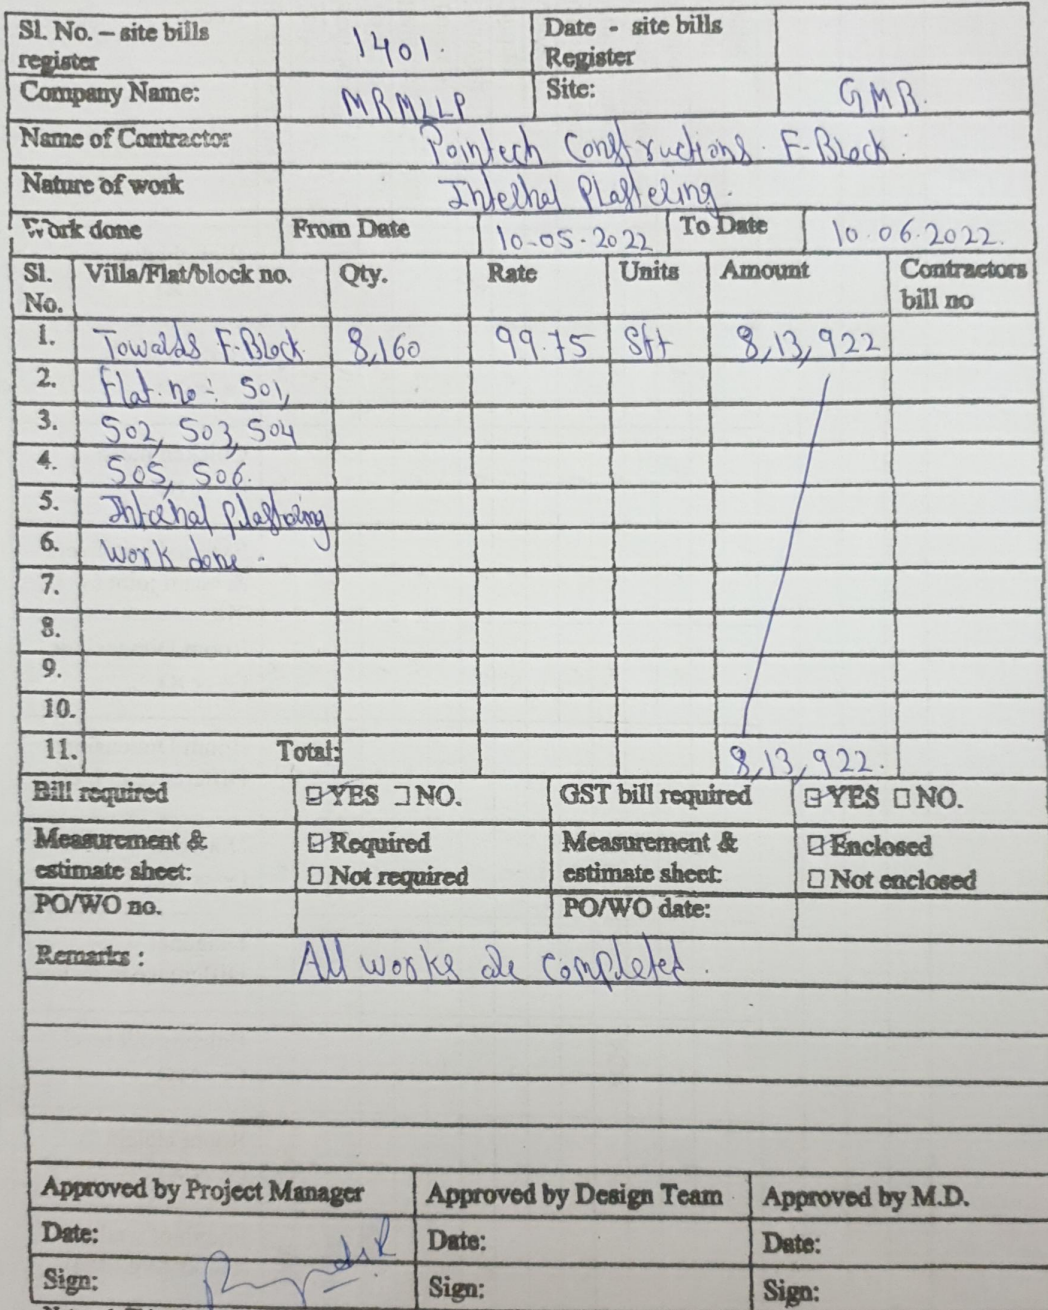 Sl. No. – site bills register 1401. Date - site bills Register
Company Name: MRMLLP Site: GMR.
Name of Contractor Pointech Constructions. F-Block.
Nature of work Internal Plastering.
Work done From Date 10-05-2022 To Date 10.06.2022.
Sl. No. Villa/Flat/block no. Qty. Rate Units Amount Contractors bill no
1. Towards F-Block. 8,160 99.75 Sft 8,13,922
2. Flat. no:- 501,
3. 502, 503, 504
4. 505, 506.
5. Internal plastering
6. work done.
7.
8.
9.
10.
11. Total: 8,13,922.
Bill required ☑YES ☐NO. GST bill required ☑YES ☐NO.
Measurement & estimate sheet: ☑Required ☐Not required Measurement & estimate sheet: ☑Enclosed ☐Not enclosed
PO/WO no. PO/WO date:
Remarks : All works are completed.
Approved by Project Manager Approved by Design Team Approved by M.D.
Date: Date: Date:
Sign: Sign: Sign: